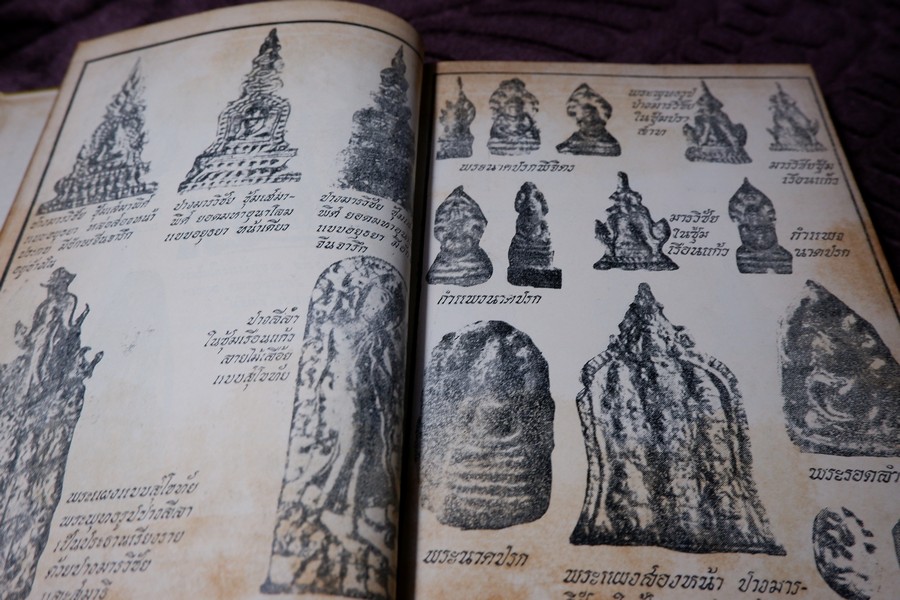 ปางมารวิชัย ซุ้มเสมาทิศ
แบบอยุธยา หล่อสองหน้า
ปางมารวิชัย ซุ้มเสมา-
ทิศ ยอดมหาอุนาโลม
แบบอยุธยา หน้าเดียว
ปางมารวิชัย ซุ้ม
ทิศ ยอดมหาอุ
แบบอยุธยา มี
จีนจารึก
ปางลีลา
ในซุ้มเรือนแก้ว
ลายไม้เลื้อย
แบบสุโขทัย
พระแผงแบบสุโขทัย
พระพุทธรูปปางลีลา
เป็นประธานเรียงราย
ด้วยปางมารวิชัย
และสมาธิ
พระนาคปรกพิจิตร
พระพุทธรูป
ปางมารวิชัย
ในซุ้มปรา
สาท
มารวิชัยซุ้ม
เรือนแก้ว
กำแพงนาคปรก
มารวิชัย
ในซุ้ม
เรือนแก้ว
กำแพง
นาคปรก
พระนาคปรก
พระแผงสองหน้า ปางมาร-
พระรอดลำ